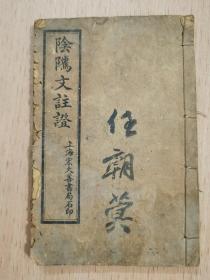 陰隲文註證
上海宏大善書局石印
任朝蓂